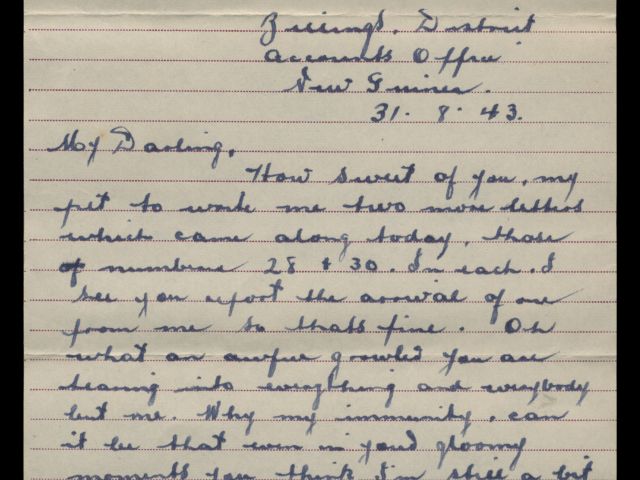 District
Accounts Office
New Guinea.
31. 8. 43.
My Darling,
How sweet of you, my
pet to write me two more letters
which came along today, those
of numbers 28 & 30. In each I
see you report the arrival of one
from me so thats fine. Oh
what an awful growler you are
tearing into everything and everybody
but me. Why my immunity, can
it be that even in your gloomy
moments you think I'm still a bit